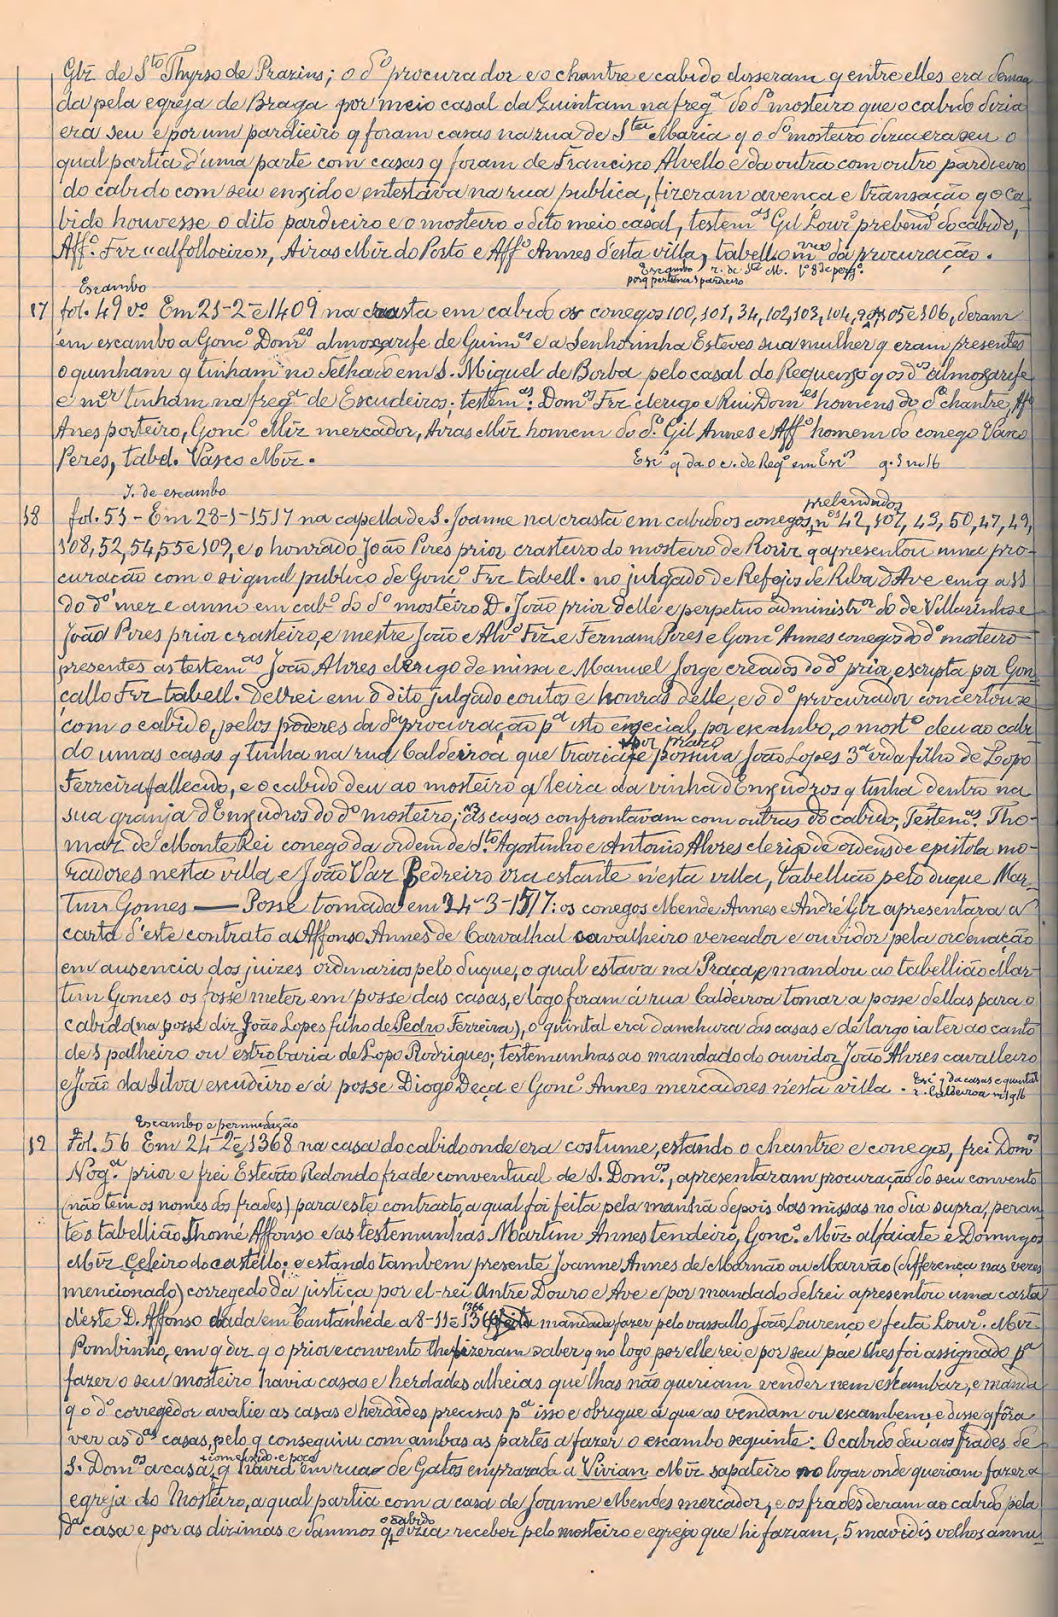 Glz de Sto Thyrso de Prazins; o do procurador e o chantre e cabido disseram q entre elles era deman
da pela egreja de Braga por meio casal da Quintam na fregª do do mosteiro que o cabido dizia
era seu e por um pardieiro q foram casas na rua de Sta Maria q o do mosteiro dizia era seu o
qual partia d'uma parte com casas q foram de Francisco Alvello e da outra com outro pardieiro
do cabido com seu enxido e entestava na rua publica, fizeram avença e transação q o ca-
bido houvesse o dito pardieiro e o mosteiro o dito meio casal, testemas Gil Lourº prebendº do cabido,
Affº. Frz "alfolloeiro", Airas Miz do Porto e Affº Annes d'esta villa, tabelliom da procuração.
Escambo r. de Sta M.
porq pertence 1 pardieiro
Escambo
17 fol. 49 vº. Em 21-2-e 1409 na crasta em cabido os conegos 100, 101, 34, 102, 103, 104, 105 e 106, deram
em escambo a Gonçº Domes almoxarife de Guimes e a Senhorinha Esteves sua mulher q eram presentes
o quinham q tinham no Telhado em S. Miguel de Borba pelo casal do Requeixo q os dos almoxarife
e mer tinham na fregª de Escudeiros; testemas: Domos Frz clerigo e Rui Domes homens do do chantre, Affº
Anes porteiro, Gonçº Miz mercador, Airas Miz homem do do Gil Annes e Affº homem do conego Vasco
Peres, tabel. Vasco Miz.
Escº q da o c. de Reqº em Escos g. 1 m 16
T. de escambo
18 fol. 51 - Em 28-1-1517 na capella de S. Joanne na crasta em cabido os conegos prebendados nos 42, 107, 43, 50, 47, 49,
108, 52, 54, 55 e 109, e o honrado João Pires prior crasteiro do mosteiro de Roriz q apresentou uma pro-
curação com o signal publico de Gonçº Frz tabell. no julgado de Refojos de Riba d'Ave em q a 11
do do mez e anno em cabº do do mosteiro D. João prior delle e perpetuo administror do de Villarinho e
João Pires prior crasteiro, e mestre João e Alvº Frz e Fernam Pires e Gonçº Annes conegos do do mosteiro
presentes as testemas João Alvres clerigo de missa e Manuel Jorge creados do do prior, escripta por Gon
callo Frz tabell. delrei em o dito julgado coutos e honras delle, e o do procurador concertouse
com o cabido, pelos poderes da da procuração pª isto especial, por escambo, o mostº deu ao cabi
do umas casas q tinha na rua Caldeiroa que trazia e possuia por prazo João Lopes 3ª vida filho de Lopo
Ferreira fallecido, e o cabido deu ao mosteiro q leira da vinha d'Enxudros q tinha dentro na
sua granja d'Enxudros do do mosteiro; as casas confrontavam com outras do cabido; Testemas. Tho-
maz de Monte Rei conego da ordem de Sto Agostinho e Antonio Alvres clerigo de ordens de epistola mo-
radores nesta villa e João Vaz Pedreiro ora estante n'esta villa, tabellião pelo duque Mar-
tim Gomes — Posse tomada em 24-3-1517: os conegos Mende Annes e André Glz apresentara a
carta d'este contrato a Affonso Annes de Carvalhal cavalheiro vereador e ouvidor pela ordenação
em ausencia dos juizes ordinarios pelo duque, o qual estava na Praça, e mandou ao tabellião Mar-
tim Gomes os fosse meter em posse das casas, e logo foram á rua Caldeiroa tomar a posse dellas para o
cabido (na posse diz João Lopes filho de Pedro Ferreira), o quintal era d'anchura das casas e de largo ia ter ao canto
de 1 palheiro ou estrobaria de Lopo Rodrigues; testemunhas ao mandado do ouvidor João Alvres cavalleiro
e João da Silva escudeiro e á posse Diogo Deça e Gonçº Annes mercadores n'esta villa.
Escº q da casas e quintal
r. Caldeiroa m 1 g 16
Escambo e permudação
19 Fol. 56 Em 24-2-e 1368 na casa do cabido onde era costume, estando o chantre e conegos, frei Domos
Nogª. prior e frei Estevão Redondo frade conventual de S. Domos, apresentaram procuração do seu convento
(não tem os nomes dos frades) para este contracto, a qual foi feita pela manhã depois das missas no dia supra, peran
te o tabellião Thomé Affonso e as testemunhas Martim Annes tendeiro, Gonçº. Miz alfaiate e Domingos
Miz Celeiro do castello; e estando tambem presente Joanne Annes de Marnão ou Marvão (differença nas vezes
mencionado) corregedo da justiça por el-rei antre Douro e Ave e por mandado delrei apresentou uma carta
d'este D. Affonso dada em Cantanhede a 8-11-e 1366 mandada fazer pelo vassallo João Lourenço e feita Lourº. Miz
Pombinho, em q diz q o prior e convento lhe fizeram saber q no logo por elle rei e por seu pae lhes foi assignado pª
fazer o seu mosteiro havia casas e herdades alheias que lhas não queriam vender nem escambar, e manda
q o do corregedor avalie as casas e herdades precisas pª isso e obrigue a que as vendam ou escambem, e disse q fôra
ver as das casas, pelo q conseguiu com ambas as partes a fazer o escambo seguinte: O cabido deu aos frades de
S. Domos a casa, com enxido e poço q havia em rua de Gatos emprazada a Vivian Miz sapateiro no logar onde queriam fazer a
egreja do Mosteiro, a qual partia com a casa de Joanne Mendes mercador, e os frades deram ao cabido pela
da casa e por as dizimas e damnos q o cabido dizia receber pelo mosteiro e egreja que hi faziam, 5 mavidis velhos annu